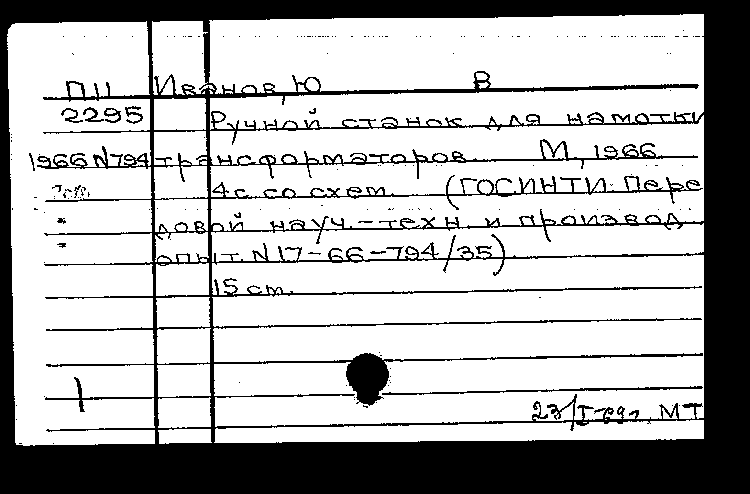 П11 Иванов, Ю В
2295 Ручной станок для намотки
1966 N794 трансформаторов. М, 1966
4с со схем. (ГОСИНТИ. Пере
довой науч.-техн. и производ
опыт. N 17-66-794/35).
15 cm.
1
23/I-69г. МТ